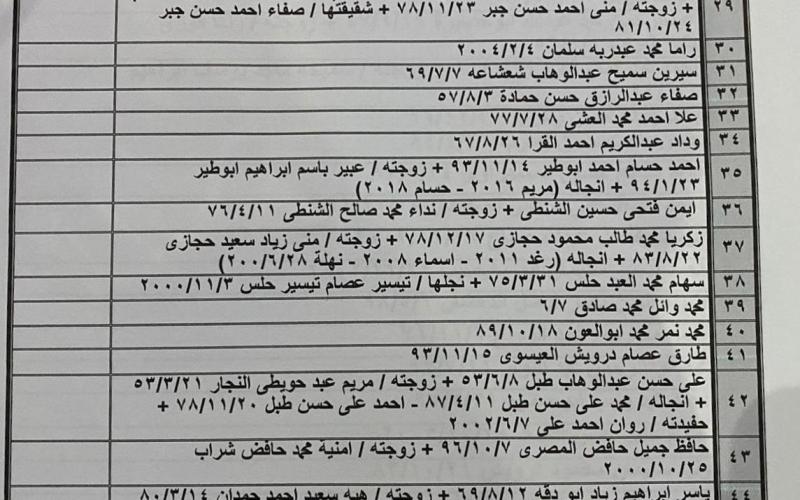 ٢٩ + زوجته / منى احمد حسن جبر ٧٨/١١/٢٣ + شقيقتها / صفاء احمد حسن جبر
٨١/١٠/٢٤
٣٠ راما محمد عبدربه سلمان ٢٠٠٤/٢/٤
٣١ سيرين سميح عبدالوهاب شعشاعه ٦٩/٧/٧
٣٢ صفاء عبدالرازق حسن حمادة ٥٧/٨/٣
٣٣ علا احمد محمد العشي ٧٧/٧/٢٨
٣٤ وداد عبدالكريم احمد القرا ٦٧/٨/٢٦
٣٥ احمد حسام احمد ابوطير ٩٣/١١/١٤ + زوجته / عبير باسم ابراهيم ابوطير
٩٤/١/٢٣ + انجاله (مريم ٢٠١٦ - حسام ٢٠١٨)
٣٦ ايمن فتحى حسين الشنطى + زوجته / نداء محمد صالح الشنطى ٧٦/٤/١١
٣٧ زكريا محمد طالب محمود حجازى ٧٨/١٢/١٧ + زوجته / منى زياد سعيد حجازى
٨٣/٨/٢٢ + انجاله (رغد ٢٠١١ - اسماء ٢٠٠٨ - نهلة ٢٠٠/٦/٢٨)
٣٨ سهام محمد العبد حلس ٧٥/٣/٣١ + نجلها / تيسير عصام تيسير حلس ٢٠٠٠/١١/٣
٣٩ محمد وائل محمد صادق ٦/٧
٤٠ محمد نمر محمد ابوالعون ٨٩/١٠/١٨
٤١ طارق عصام درويش العيسوى ٩٣/١١/١٥
٤٢ على حسن عبدالوهاب طبل ٥٣/٦/٨ + زوجته / مريم عبد حويطى النجار ٥٣/٣/٢١
+ انجاله / محمد على حسن طبل ٨٧/٤/١١ - احمد على حسن طبل ٧٨/١١/٢٠ +
حفيدته / روان احمد على ٢٠٠٢/٦/٧
٤٣ حافظ جميل حافض المصرى ٩٦/١٠/٧ + زوجته / امنية محمد حافض شراب
٢٠٠٠/١٠/٢٥
٤٤ ياسر ابراهيم زياد ابو دقه ٦٩/٨/١٢ + زوجته / هبه سعيد احمد حمدان ٨٠/٣/١٤